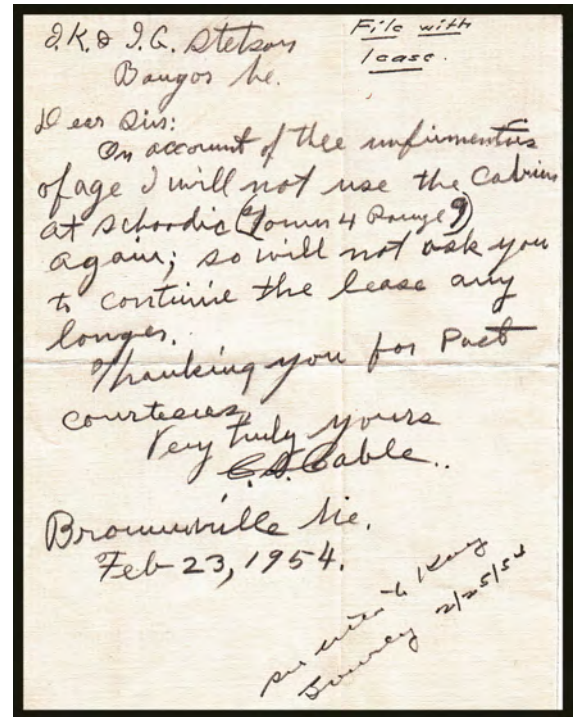 I.K. & I.G. Stetson
Bangor Me.
File with
lease.
Dear Sirs:
On account of thee infirmenties
of age I will not use the Cabins
at Schoodic (Town 4 Range 9)
again; so will not ask you
to continue the lease any
longer.
Thanking you for Past
courtecies
Very truly yours
C.S. Cable..
Brownville Me.
Feb 23, 1954.
2/25/54